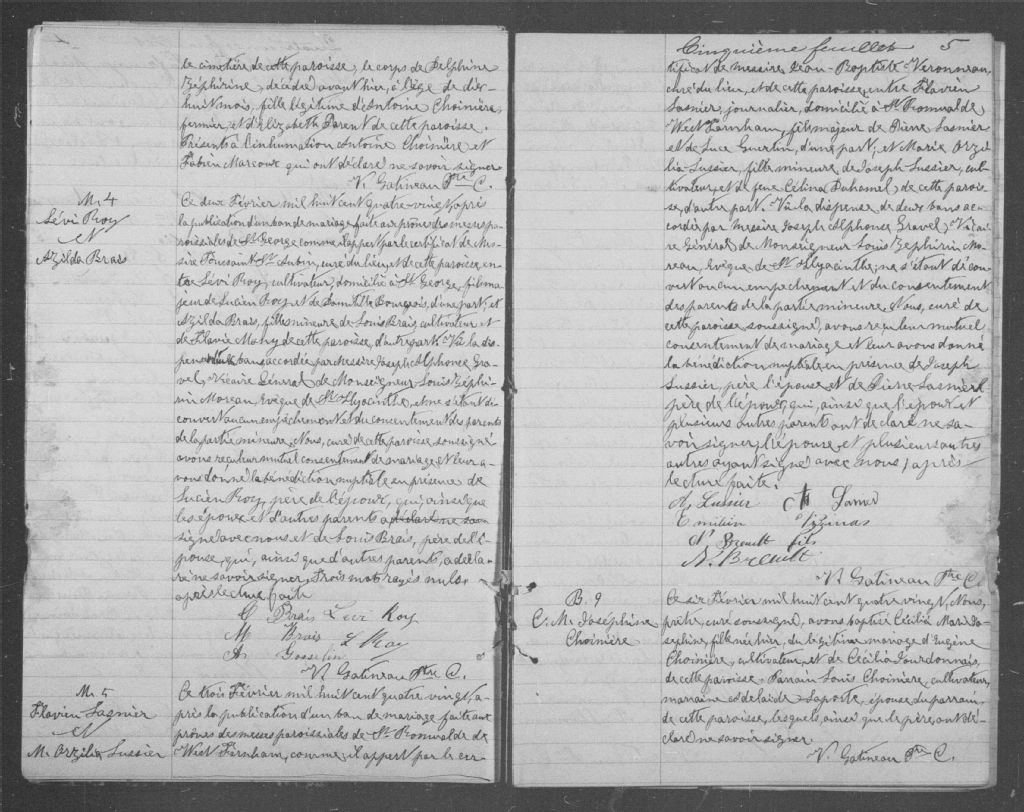 le cimetère de cette paroisse, le corps de Delphine
Zéphirine, décédée avant hier, à l'âge de dix-
huit mois, fille légitime d'Antoine Choinière
fermier, et d'Elizabeth Parent de cette paroisse.
Présents à l'inhumation Antoine Choinière et
Fabien Marcoux qui ont déclaré ne savoir signer
V. Gatineau Ptre C.
M. 4
Lévi Roy
et
Azilda Brais
Ce deux Février mil huit cent quatre-vingt, après
la publication d'un ban de mariage faite aux prônes des messes pa-
roissiales de St George comme il appert par le certificat de Mes-
sire Toussaint St Aubin, curé du lieu, et de cette paroisse, en-
tre Lévi Roy, cultivateur, domicilié à St George, fils ma-
jeur de Lucien Roy et de Domitille Bourgeois, d'une part, et
Azilda Brais, fille mineure de Louis Brais, cultivateur et
de Flavie Many de cette paroisse, d'autre part. Vu la dis-
pense de deux bans accordée par Messire Joseph Alphonse Gra-
vel, Vicaire Général de Monseigneur Louis Zéphi-
rin Moreau, Evêque de St Hyacinthe, et ne s'étant dé-
couvert aucun empêchement et du consentement des parents
de la partie mineure, Nous, curé de cette paroisse, soussigné
avons reçu leur mutuel consentement de mariage et leur a-
vons donné la bénédiction nuptiale en présence de
Lucien Roy, père de l'époux, qui, ainsi que
les époux et d'autres parents a déclaré ne savoir
signé avec nous et de Louis Brais, père de l'é-
pouse, qui, ainsi que d'autres parents, a décla-
ré ne savoir signer, Trois mots rayés nuls
après lecture faite
C Brais Levi Roy
M Brais L Roy
A Gosselin
V. Gatineau Ptre C.
M. 5
Flavien Lasnier
et
M. Orzilia Lussier
Ce trois Février mil huit cent quatre vingt, a-
près la publication d'un ban de mariage faite aux
prônes des messes paroissiales de St Romualde de
West Farnham, comme il appert par le cer-
Cinquième feuillet 5
tificat de messire Jean-Baptiste Véronneau,
curé du lieu, et de cette paroisse, entre Flavien
Lasnier, journalier, domicilié à St Romualde
West Farnham, fils majeur de Pierre Lasnier
et de Luce Guertin, d'une part, et Marie Orzi-
lia Lussier, fille mineure de Joseph Lussier, cul-
tivateur, et de feue Célina Duhamel, de cette parois-
se, d'autre part. Vu la dispense de deux bans ac-
cordée par Messire Joseph Alphonse Gravel, Vicaire
Général de Monseigneur Louis Zéphirin Mo-
reau, Evêque de St Hyacinthe; ne s'étant décou-
vert aucun empêchement et du consentement
des parents de la partie mineure, Nous, curé de
cette paroisse soussigné, avons reçu leur mutuel
consentement de mariage et leur avons donné
la bénédiction nuptiale en présence de Joseph
Lussier, père de l'épouse et de Pierre Lasnier
père de l'époux, qui, ainsi que l'époux et
plusieurs autres parents ont déclaré ne sa-
voir signer, l'épouse, et plusieurs autres
autres ayant signé avec nous, après
lecture faite.
A Lussier
Emilien
Breault fils
N. Breault
V. Gatineau Ptre C.
B. 9
C. M. Joséphine
Choinière
Ce six Février mil huit cent quatre vingt, Nous,
prêtre, curé soussigné, avons baptisé Cécilia Marie Jo-
séphine, fille née hier, du légitime mariage d'Eugène
Choinière, cultivateur, et de Cécilia Jourdonnais,
de cette paroisse. Parrain Louis Choinière, cultivateur,
marraine Adelaide Laporte, épouse du parrain,
de cette paroisse, lesquels, ainsi que le père, ont dé-
claré ne savoir signer.
V. Gatineau Ptre C.